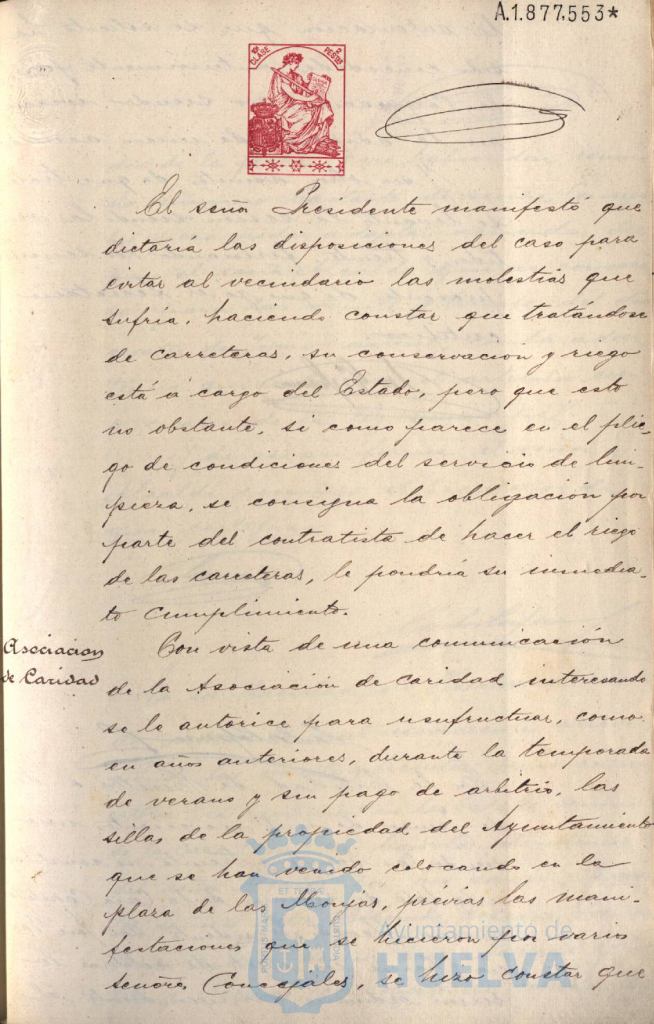 A.1.877,553*
10ª CLASE 2 PESETAS
El señor Presidente manifestó que
dictaría las disposiciones del caso para
evitar al vecindario las molestias que
sufría, haciendo constar que tratándose
de carreteras, su conservación y riego
está a cargo del Estado, pero que esto
no obstante, si como parece en el plie-
go de condiciones del servicio de lim-
pieza, se consigna la obligación por
parte del contratista de hacer el riego
de las carreteras, le pondría su inmedia-
to cumplimiento.
Asociacion
de Caridad
Con vista de una comunicación
de la Asociación de Caridad interesando
se le autorice para usufructuar, como
en años anteriores, durante la temporada
de verano y sin pago de arbitrio, las
sillas de la propiedad del Ayuntamiento
que se han venido colocando en la
plaza de las Monjas, prévias las mani-
festaciones que se hicieron por varios
señores Concejales, se hizo constar que
Ayuntamiento de
HUELVA